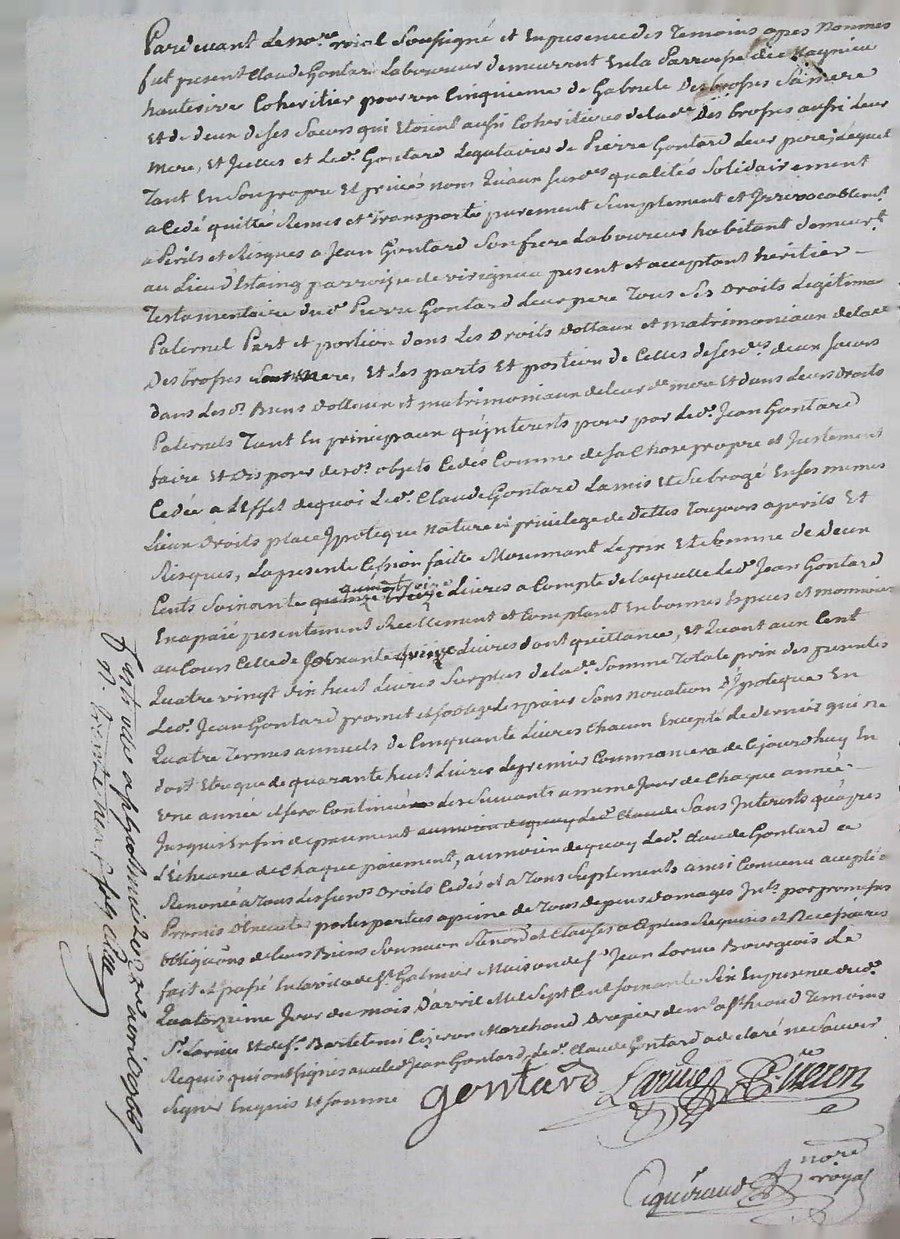 Pardevant le no.re roial Sousigné et En presence des Temoins apes Nommes
fut present Claude Gontard Laboureur demeurent En la Parroesse de Maynieu
hauterive Coheritier pour un Cinquieme de Gabriele Des brosses Sa mere
Et de deux de ses Sœurs qui Etoient aussi Coheritieres de lade Des brosses aussi Leur
Mere, Et Icelles et Led. Gontard Legataires de Pierre Gontard leur pere, Lequel
Tant En Son propre Et privé nom Qu'aux susdes qualités Solidairement
a Cedé quitté Remis et Transporté purement Simplement et Irrevocablemt
a Perils et Risques a Jean Gontard Son frere Laboureur habitant demeurt
au Lieu D'Istaing parroisse de virigneu present et acceptant heritier
Testamentaire dud. Pierre Gontard Leur pere Tous Ses Droits Legitima
Paternel Part et portion dans Les Droits dottaux et matrimoniaux de lade
Des brosses Sa Mere, Et Les parts Et portion de Celles de sesdes deux Sœurs
dans Lesd. Biens dottaux et matrimoniaux de leurde mere Et dans Leurs droits
Paternels Tant En principaux qu'interests pour par Led. Jean Gontard
faire Et Disposer desd. objets Cedés Comme de sa Chose propre et Justement
Cedée a L'Effet de quoi Led. Claude Gontard La mis Et Subrogé En ses memes
Lieux Droits place Ypoteque Nature et privilege de Dettes Toujours a perils Et
Risques, La presente Cession faite Moienant Le prix Et Somme de deux
Cents Soixante treize Livres a Compte de laquelle Led. Jean Gontard
En a paié presentement Reellement et Comptant En bonnes Especes et monnoies
au Cours Celle de Soixante quinze Livres dont quittance, et Quant aux Cent
Quatre vingt dix huit Livres Surplus de lade Somme Totale prix des presentes
Led. Jean Gontard promet et s'oblige de les paier Sans novation D'ypoteque En
Quatre Termes annuels de Cinquante Livres Chacun Excepté le dernier que ne
doit Etre que de quarante huit Livres le premier Commencera de Cejourdhuy En
Une année et sera Continué les suivants a meme Jour de Chaque année
Jusques En fin de paiement au moien de quoy led. Claude Sans Interests qu'apres
L'Echeance de Chaque paiement, au moien de quoy Led. Claude Gontard a
Renoncé a Tous lesd. Droits Cedés et a Tous Suplements ainsi Convenu accepté
Promis D'Executer par les parties a peine de Tous depens domages Ints. par promesses
obligaons de leurs Biens Soumission Renon et Clauses a Ce plus Requises et Necessaires
fait et passé En la ville de St. Galmier Maison de Sr. Jean Larue Bourgeois Le
Quatorzieme Jour du mois D'avril Mil Sept Cent soixante Six En presence dud.
Sr. Larue Et de Sr. Bartelemi Cizeron Marchand Drapier dem. a St. heand Temoins
Requis qui ont Signés avec led. Jean Gontard, Led. Claude Gontard a declaré ne Sauoir
Signer Enquis Et Somme
gontard Larue Cizeron
guéraud no.re royal
à St galmier le 22 avril 1766